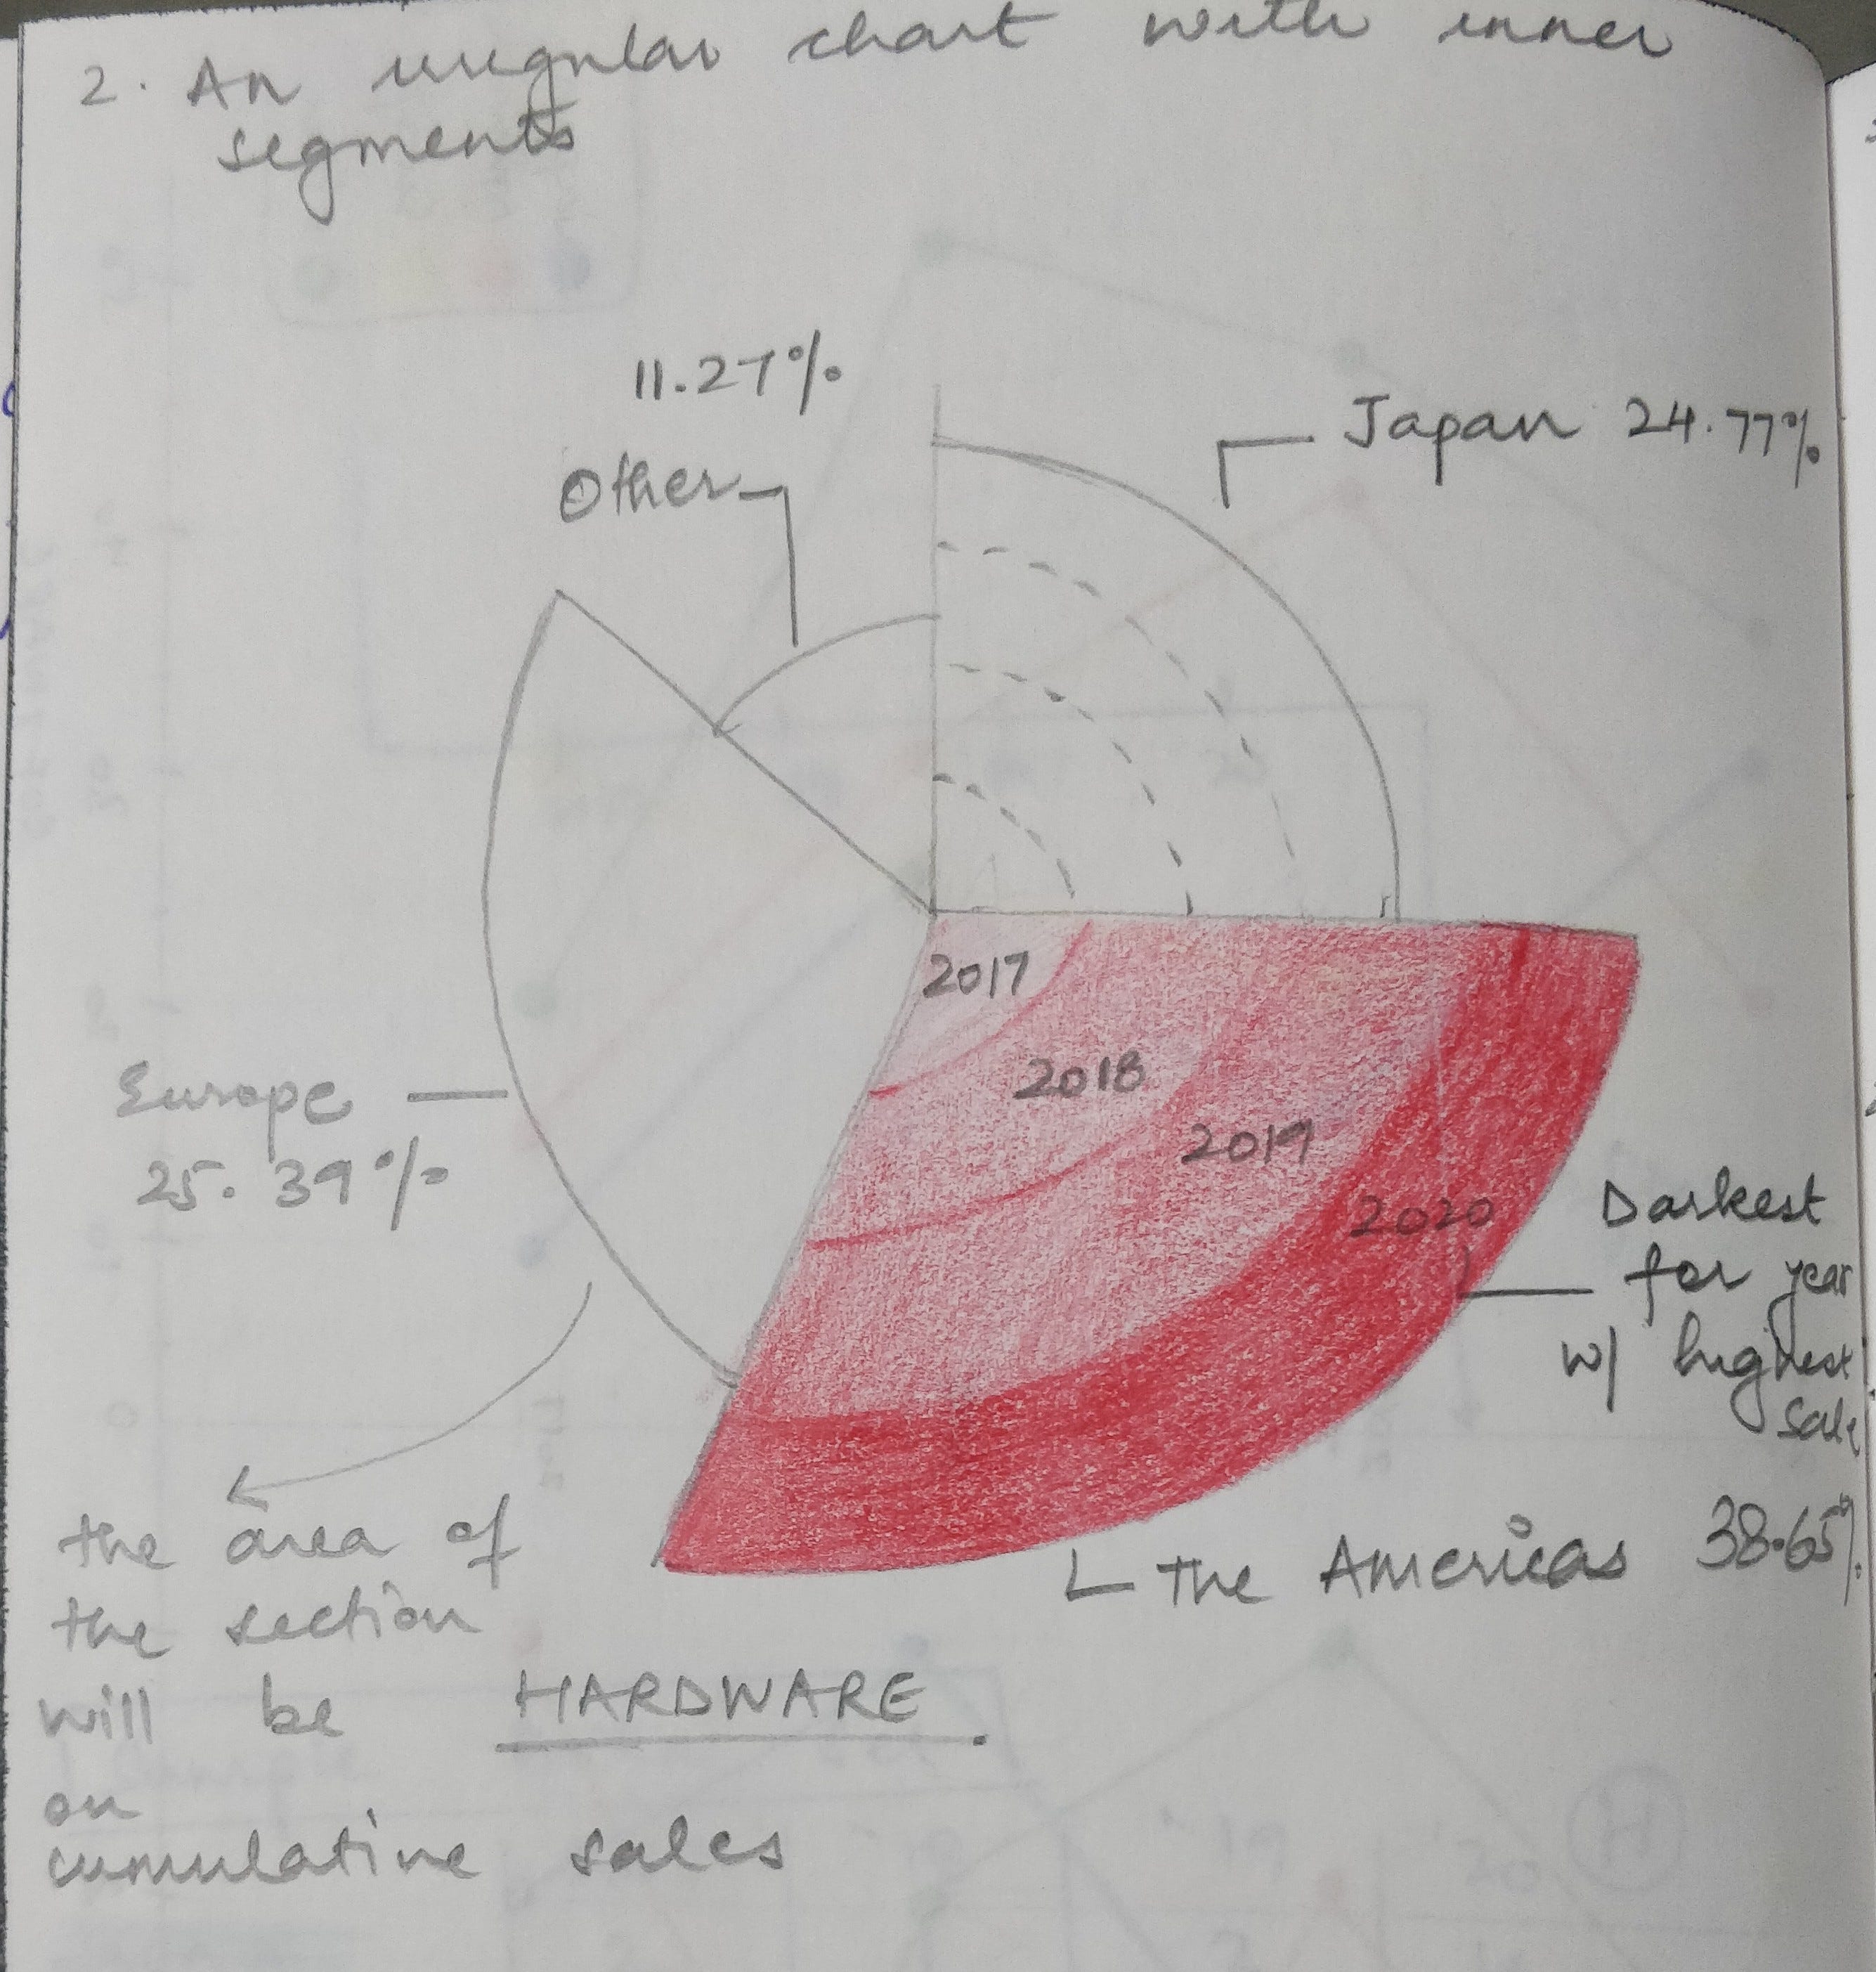 2. An irregular chart with inner
segments
11.27%
Other
Japan 24.77%
2017
2018
2019
2020
Europe
25.39%
Darkest
for year
w/ highest
sale
The Americas 38.65%
the area of
the section
will be
on
cumulative sales
HARDWARE